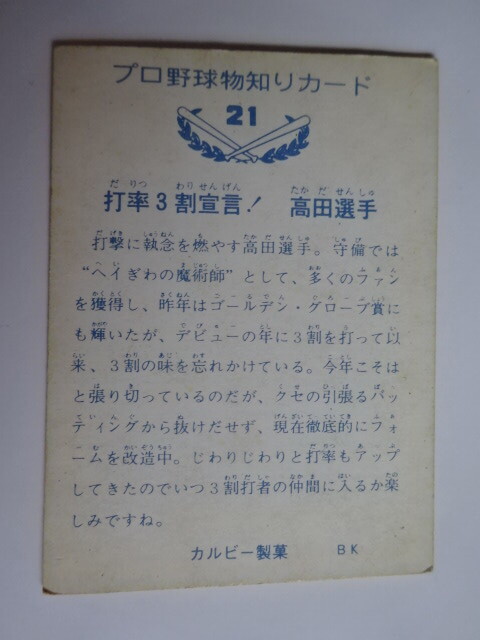 プロ野球物知りカード
21
打率3割宣言! 高田選手
打撃に執念を燃やす高田選手。守備では
“ヘイぎわの魔術師”として、多くのファン
を獲得し、昨年はゴールデン・グローブ賞に
も輝いたが、デビューの年に3割を打って以
来、3割の味を忘れかけている。今年こそは
と張り切っているのだが、クセの引張るバッ
ティングから抜けだせず、現在徹底的にフォ
ームを改造中。じわりじわりと打率もアップ
してきたのでいつ3割打者の仲間に入るか楽
しみですね。
カルビー製菓 BK